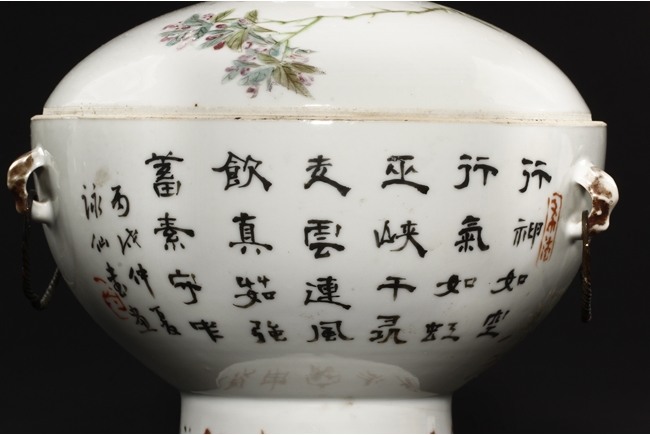 行神如空
行氣如虹
巫峽千尋
走雲連風
飲真茹強
蓄素守中
丙戌仲夏
詠仙書